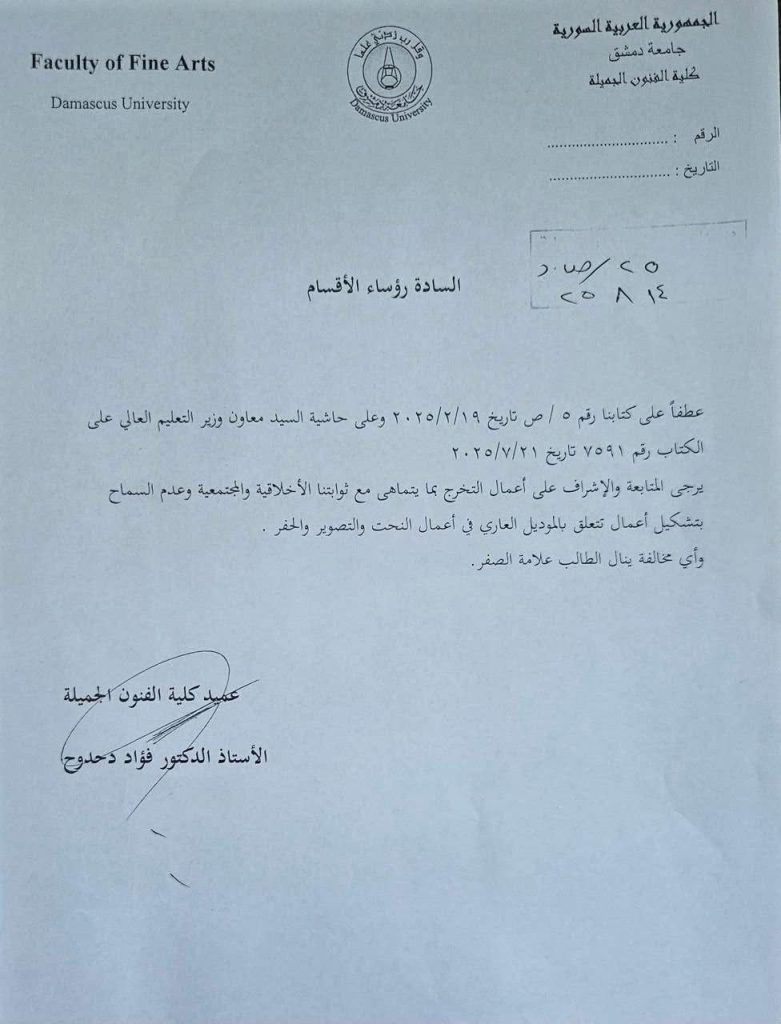 الجمهورية العربية السورية
جامعة دمشق
كلية الفنون الجميلة
Faculty of Fine Arts
Damascus University
وقل رب زدني علما
جامعة دمشق
Damascus University
الرقم : ..............................
التاريخ : ..............................
٢٥ / ص.د
١٤ ٨ ٢٥
السادة رؤساء الأقسام
عطفاً على كتابنا رقم ٥ / ص تاريخ ٢٠٢٥/٢/١٩ وعلى حاشية السيد معاون وزير التعليم العالي على
الكتاب رقم ٧٥٩١ تاريخ ٢٠٢٥/٧/٢١
يرجى المتابعة والإشراف على أعمال التخرج بما يتماهى مع ثوابتنا الأخلاقية والمجتمعية وعدم السماح
بتشكيل أعمال تتعلق بالموديل العاري في أعمال النحت والتصوير والحفر .
وأي مخالفة ينال الطالب علامة الصفر.
عميد كلية الفنون الجميلة
الأستاذ الدكتور فؤاد دحدوح